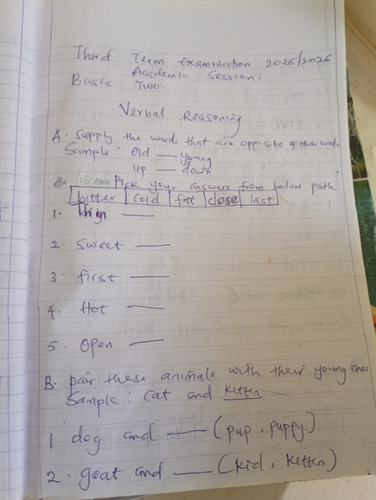 Third Term Examination 2025/2026
Academic Session.
Basic Two.
Verbal Reasoning
A. Supply the words that are opposite of other words
Sample: Old — young
up — down
Pick your answers from below path
bitter | cold | fat | close | last
1. —
2. Sweet —
3. first —
4. Hot —
5. Open —
B. pair these animals with their young ones
Sample: Cat and kitten
1. dog and — (pup, puppy)
2. goat and — (kid, kitten)